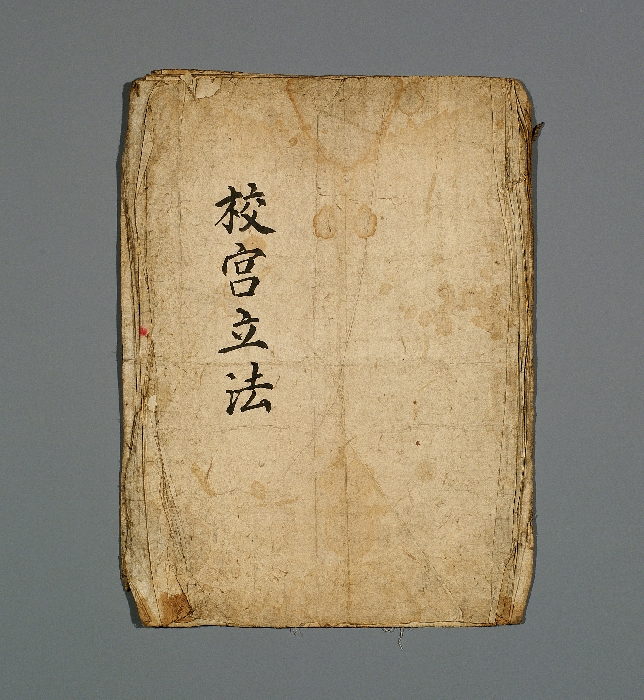 校宮立法